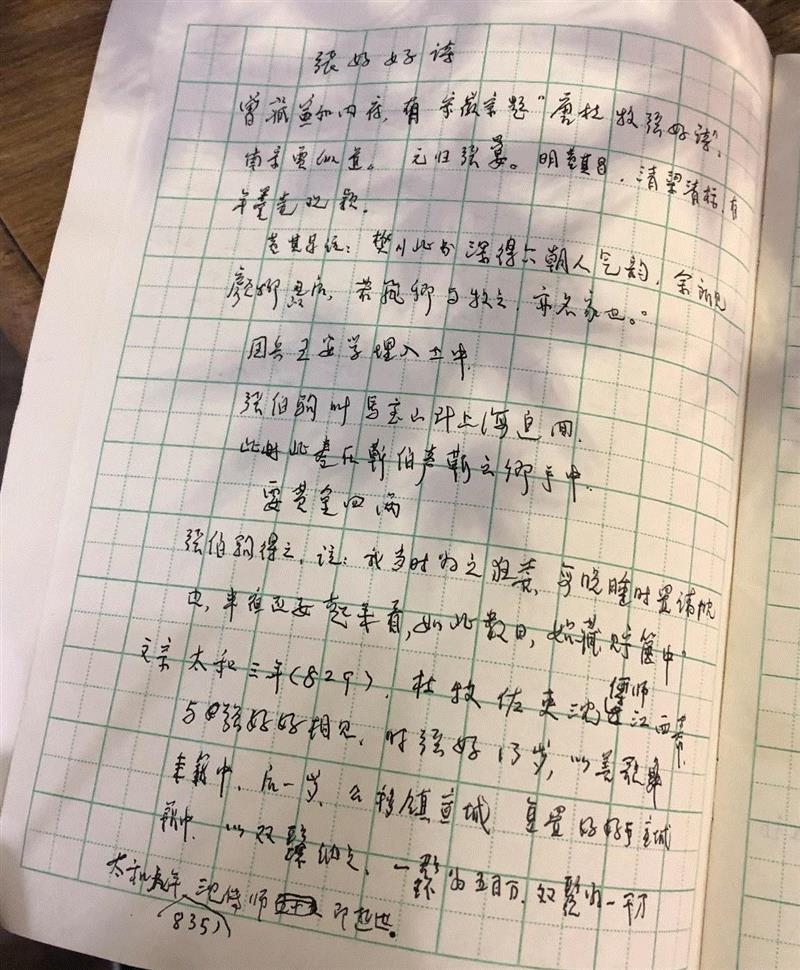 张好好诗
曾藏宣和内府,有宋徽宗题“唐杜牧张好好诗”,
南宋贾似道。元归张晏。明董其昌,清梁清标,有
年羹尧观款。
董其昌经:樊川此书深得六朝人气韵,余所见
颜柳以后,若飞卿与牧之,亦名家也。
国兵王安学埋入土中,
张伯驹叫马宝山到上海追问,
此时此卷在靳伯声靳云卿手中.
要黄金四两
张伯驹得之,说:我当时为之狂喜,每晚睡时置诸枕
边,半夜还要起来看,如此数日,始藏贮箧中”
文宗 太和三年(829),杜牧佐吏沈传师江西幕,
与张好好相见,时张好13岁,以善歌舞
来籍中,后一岁,公移镇宣城 复置好好于宣城
籍中,以双鬟纳之,一鬟为五百万,双鬟为一千万
太和九年,沈传师 即逝世。
(835)